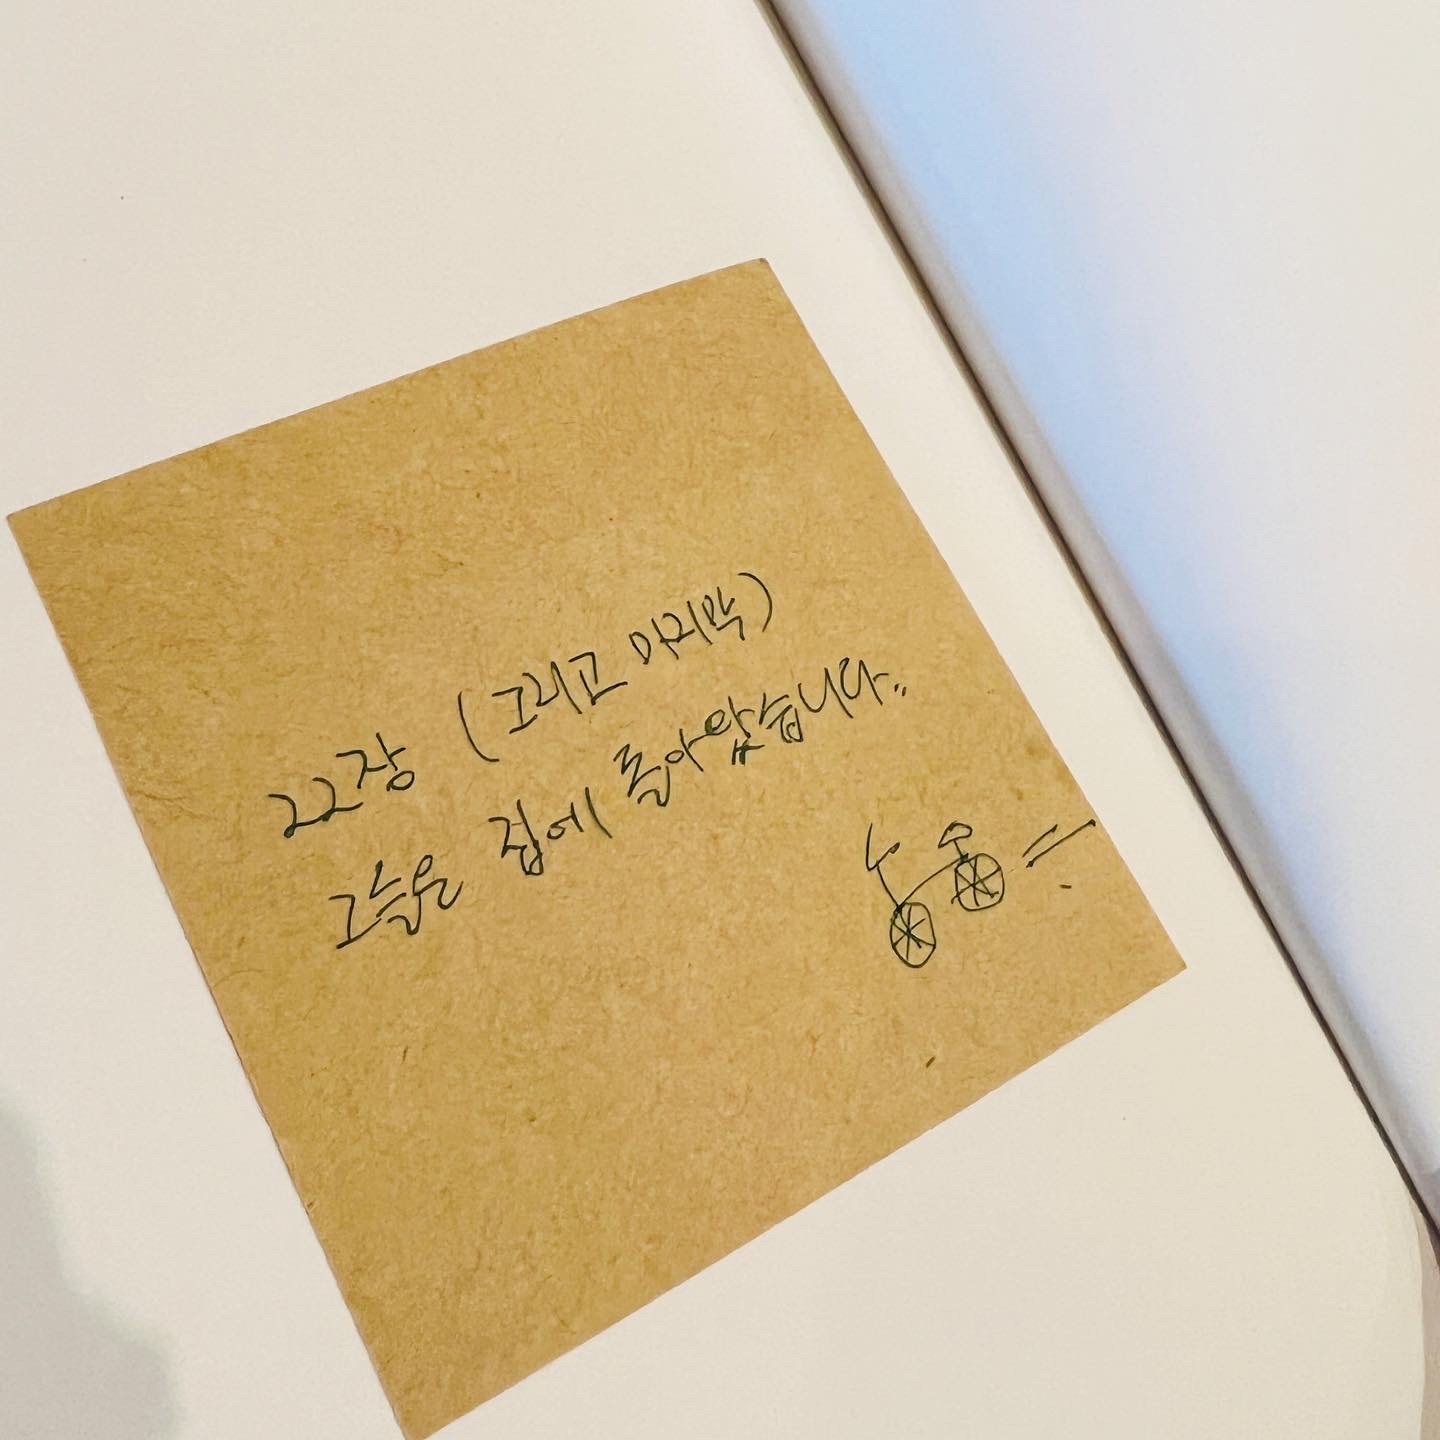 22장 (그리고 마지막)
그들은 집에 돌아왔습니다..